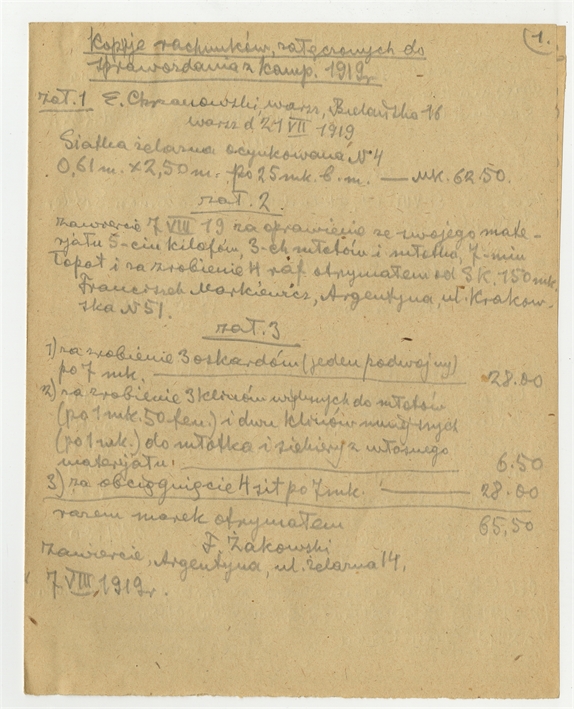 1.
Kopje rachunków, załączonych do
sprawozdania z kamp. 1919r.
zał. 1 E. Chrzanowski, warsz, Bielańska 16
warsz d 21 VII 1919
Siatka żelazna ocynkowana N 4
0,61 m. x 2,50 m. po 25 mk. b. m. — Mk. 62.50.
zał. 2.
Zawiercie 7 VIII 19 za oprawienie ze swojego mate-
rjału 5-ciu kilofów, 3-ch młotów i młotka, 7-miu
łopat i za zrobienie 4 raf otrzymałem od S K. 150 mk.
Franciszek Markiewicz, Argentyna, ul. Krakow-
ska N 51.
zał. 3
1) za zrobienie 3 oskardów (jeden podwojny)
po 7 mk. — 28.00
2) za zrobienie 3 klinów do młotów
(po 1 mk. 50 fen.) i dwu klinów mniejszych
(po 1 mk.) do młotka i siekiery z własnego
materjału. — 6.50
3) za obciągnięcie 4 sit po 7 mk. — 28.00
razem marek otrzymałem 65,50
F. Żakowski
Zawiercie, Argentyna, ul. żelazna 14,
7 VIII 1919 r.